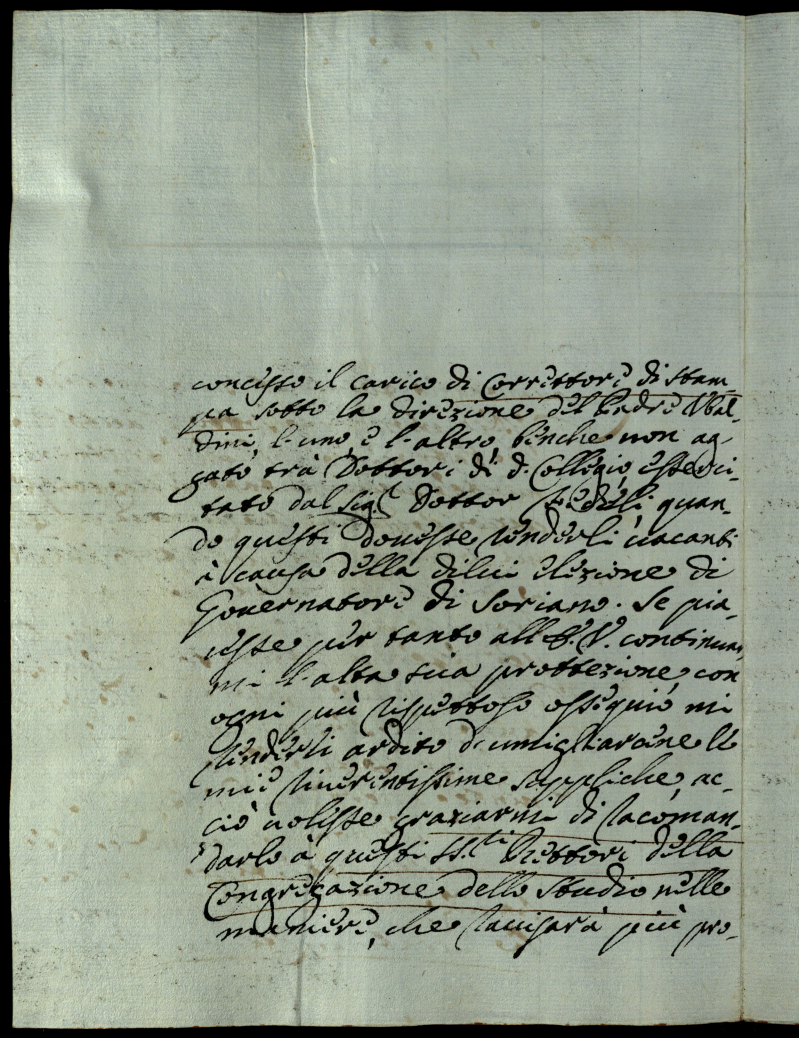 concesso il carico di Corrèttorè di stam-
pa sotto la direzione dèl Padrè Vbal-
dini, l'uno, è l'altro, bènche non ag-
gato trà Dottori di d.º Collegio esserci-
tato dal Sig.r Dottor Fèdèli, quan-
do quèsti douèsse rènderli uacanti
à causa dèlla dilui elezione di
Gouèrnatorè di Soriano. Se pia-
cèsse pèr tanto all'E. V. continuar-
mi l'alta sua prottèzione, con
ogni più rispettoso ossèquio mi
rènderei ardito d'umigliarcene le
miè riuèrèntissime supplichè, ac-
ciò uolèsse graziarmi di racoman-
darlo à quèsti SS.ri Rèttori dèlla
Congregazione dello Studio nèlle
manièrè, che rauisarà più pro-